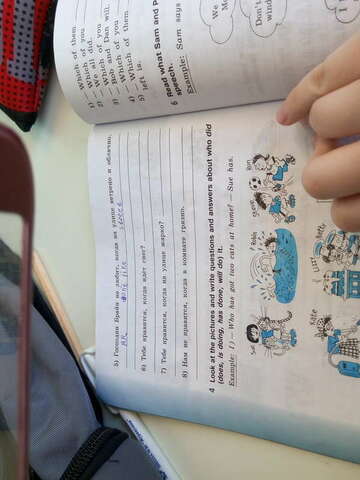 — Which of them
1) — Which of you
— We all did.
2) — Which of you
— Bob and Dan will.
3) — Which of you
4) — Which of them
5)
left is.
6 Read what Sam and P
speech.
Example: Sam says
We
Mo
Don't
wind
5) Господин Брайн не любит, когда на улице ветрено и облачно.
6) Тебе нравится, когда идёт снег?
7) Тебе нравится, когда на улице жарко?
8) Нам не нравится, когда в комнате грязно.
4 Look at the pictures and write questions and answers about who did
(does, is doing, has done, will do) it.
Example: 1) — Who has got two cats at home? — Sue has.
Sue
Robin
Ron
Lizzy
Kate